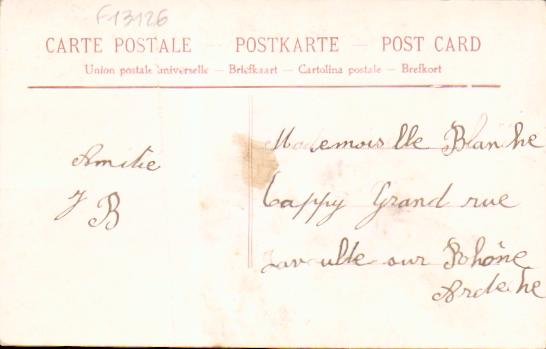 F13126
CARTE POSTALE — POSTKARTE — POST CARD
Union postale universelle — Briefkaart — Cartolina postale — Brefkort
Mademoiselle Blanche
Amitie
Cappy Grand rue
J B
Lavoulte sur Rhône
Ardeche